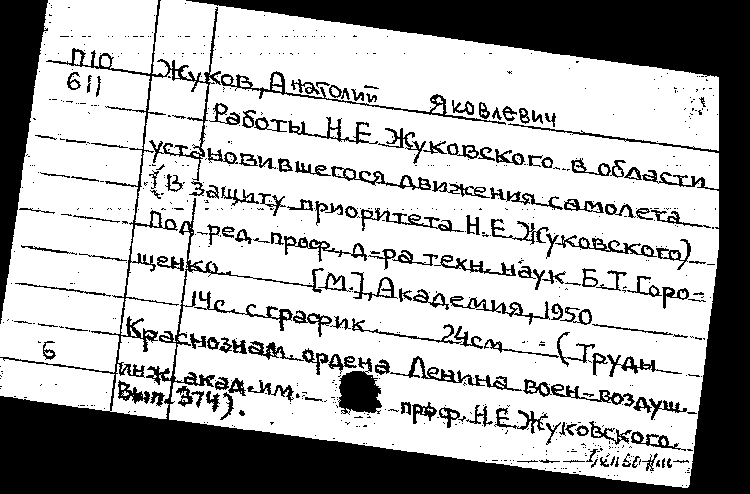 П10
611
Жуков, Анатолий Яковлевич
Работы Н.Е. Жуковского в области
установившегося движения самолета
(В защиту приоритета Н.Е. Жуковского)
Под ред. проф., д-ра техн. наук Б.Т. Горо-
щенко. [М.], Академия, 1950
14с. с график. 24см (Труды
Краснознам. ордена Ленина воен-воздуш.
6
инж. акад. им. проф. Н.Е. Жуковского.
Вып. 374).